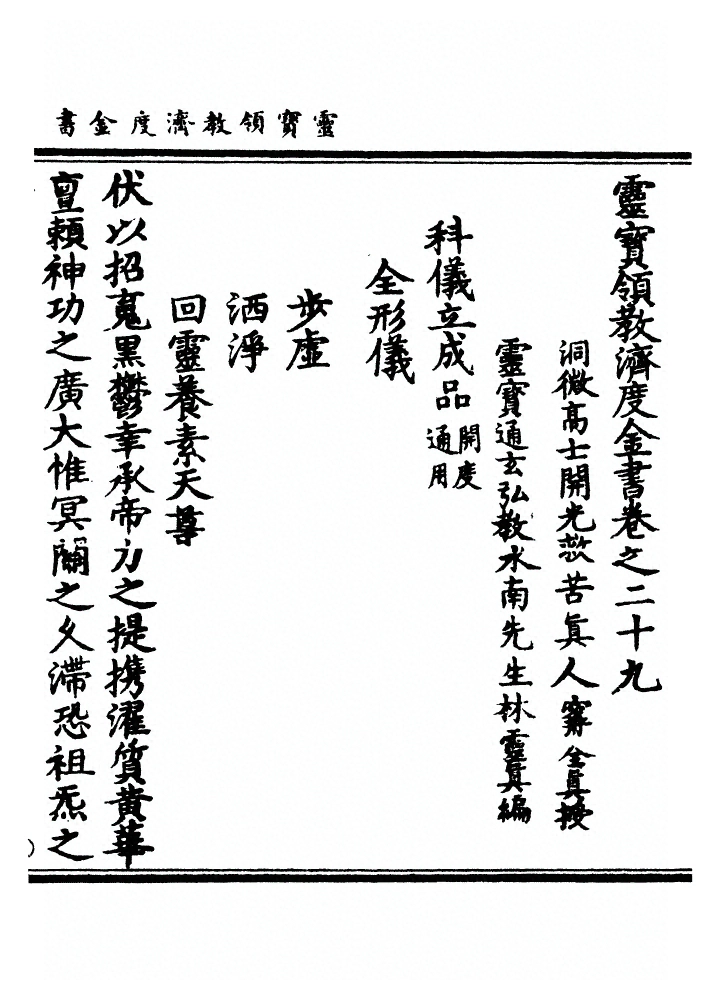 靈寶領教濟度金書
靈寶領教濟度金書卷之二十九
洞微高士開光救苦眞人寗全眞授
靈寶通玄弘教水南先生林靈眞編
科儀立成品開度通用
全形儀
步虛
洒淨
回靈養素天尊
伏以招䰟黑鬱幸承帝力之提携濯質黄華
亶賴神功之廣大惟冥關之久滯恐祖炁之